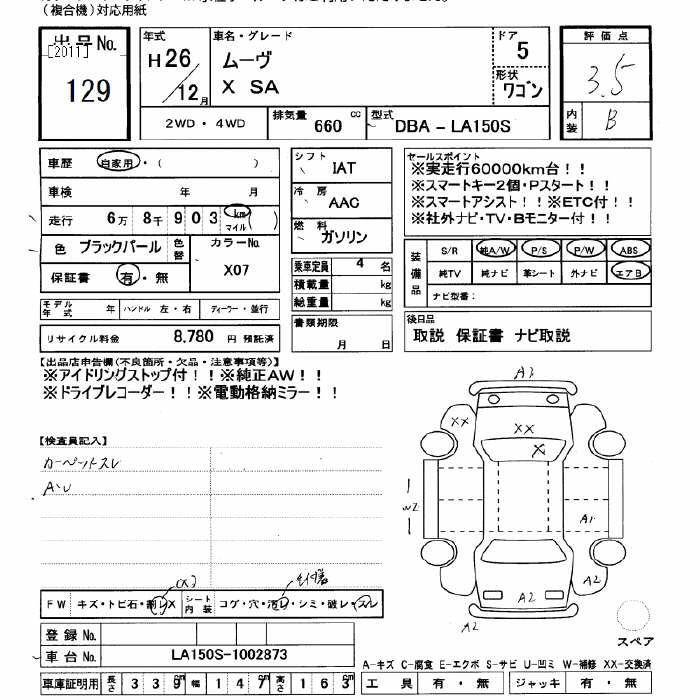 （複合機）対応用紙
出品No.
[2011]
129
年式
H26/12月
車名・グレード
ムーヴ
X SA
ドア
5
形状
ワゴン
評価点
3.5
内装 B
2WD・4WD
排気量 660 cc
型式 DBA－LA150S
車歴 自家用・（ ）
車検 年 月
走行 6万 8千 9 0 3 km マイル
色 ブラックパール 色替
カラーNo.
X07
保証書 有・無
シフト IAT
冷房 AAC
燃料 ガソリン
乗車定員 4 名
積載量 kg
総重量 kg
セールスポイント
※実走行60000km台！！
※スマートキー2個・Pスタート！！
※スマートアシスト！！※ETC付！！
※社外ナビ・TV・Bモニター付！！
装備品
S/R 純A/W P/S P/W ABS
純TV 純ナビ 革シート 外ナビ エアB
ナビ型番：
モデル年式 年 ハンドル 左・右 ディーラー・並行
リサイクル料金 8,780 円 預託済
書類期限
月 日
後日品
取説 保証書 ナビ取説
【出品店申告欄(不良箇所・欠品・注意事項等)】
※アイドリングストップ付！！※純正AW！！
※ドライブレコーダー！！※電動格納ミラー！！
【検査員記入】
カーペットスレ
A3
XX
XX
X
W2
A1
A2
A2
A2
FW キズ・トビ石・割レX
シート内装 コゲ・穴・汚レ・シミ・破レ・スレ
登録No.
車台No. LA150S-1002873
スペア
A-キズ C-腐食 E-エクボ S-サビ U-凹ミ W-補修 XX-交換済
車庫証明用 長さ 3 3 9 cm 幅 1 4 7 cm 高さ 1 6 3 cm
工具 有・無 ジャッキ 有・無